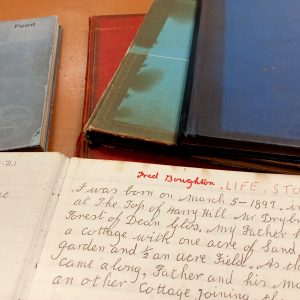 Feint
Fred Boughton. LIFE. STO
I was born on March 5 - 1897. in
at The Top of Harry Hill. Nr Drybr
Forest of Dean Glos. My Father h
a cottage with one acre of Land
garden and ½ an acre Field. As th
came along, Father and his M
an other Cottage Joining th